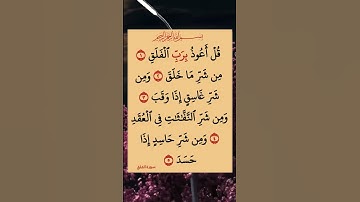 بسم الله الرحمن الرحيم
قُلْ أَعُوذُ بِرَبِّ ٱلْفَلَقِ ١
مِن شَرِّ مَا خَلَقَ ٢ وَمِن
شَرِّ غَاسِقٍ إِذَا وَقَبَ ٣
وَمِن شَرِّ ٱلنَّفَّٰثَٰتِ فِى ٱلْعُقَدِ
٤ وَمِن شَرِّ حَاسِدٍ إِذَا
حَسَدَ ٥
سورة الفلق